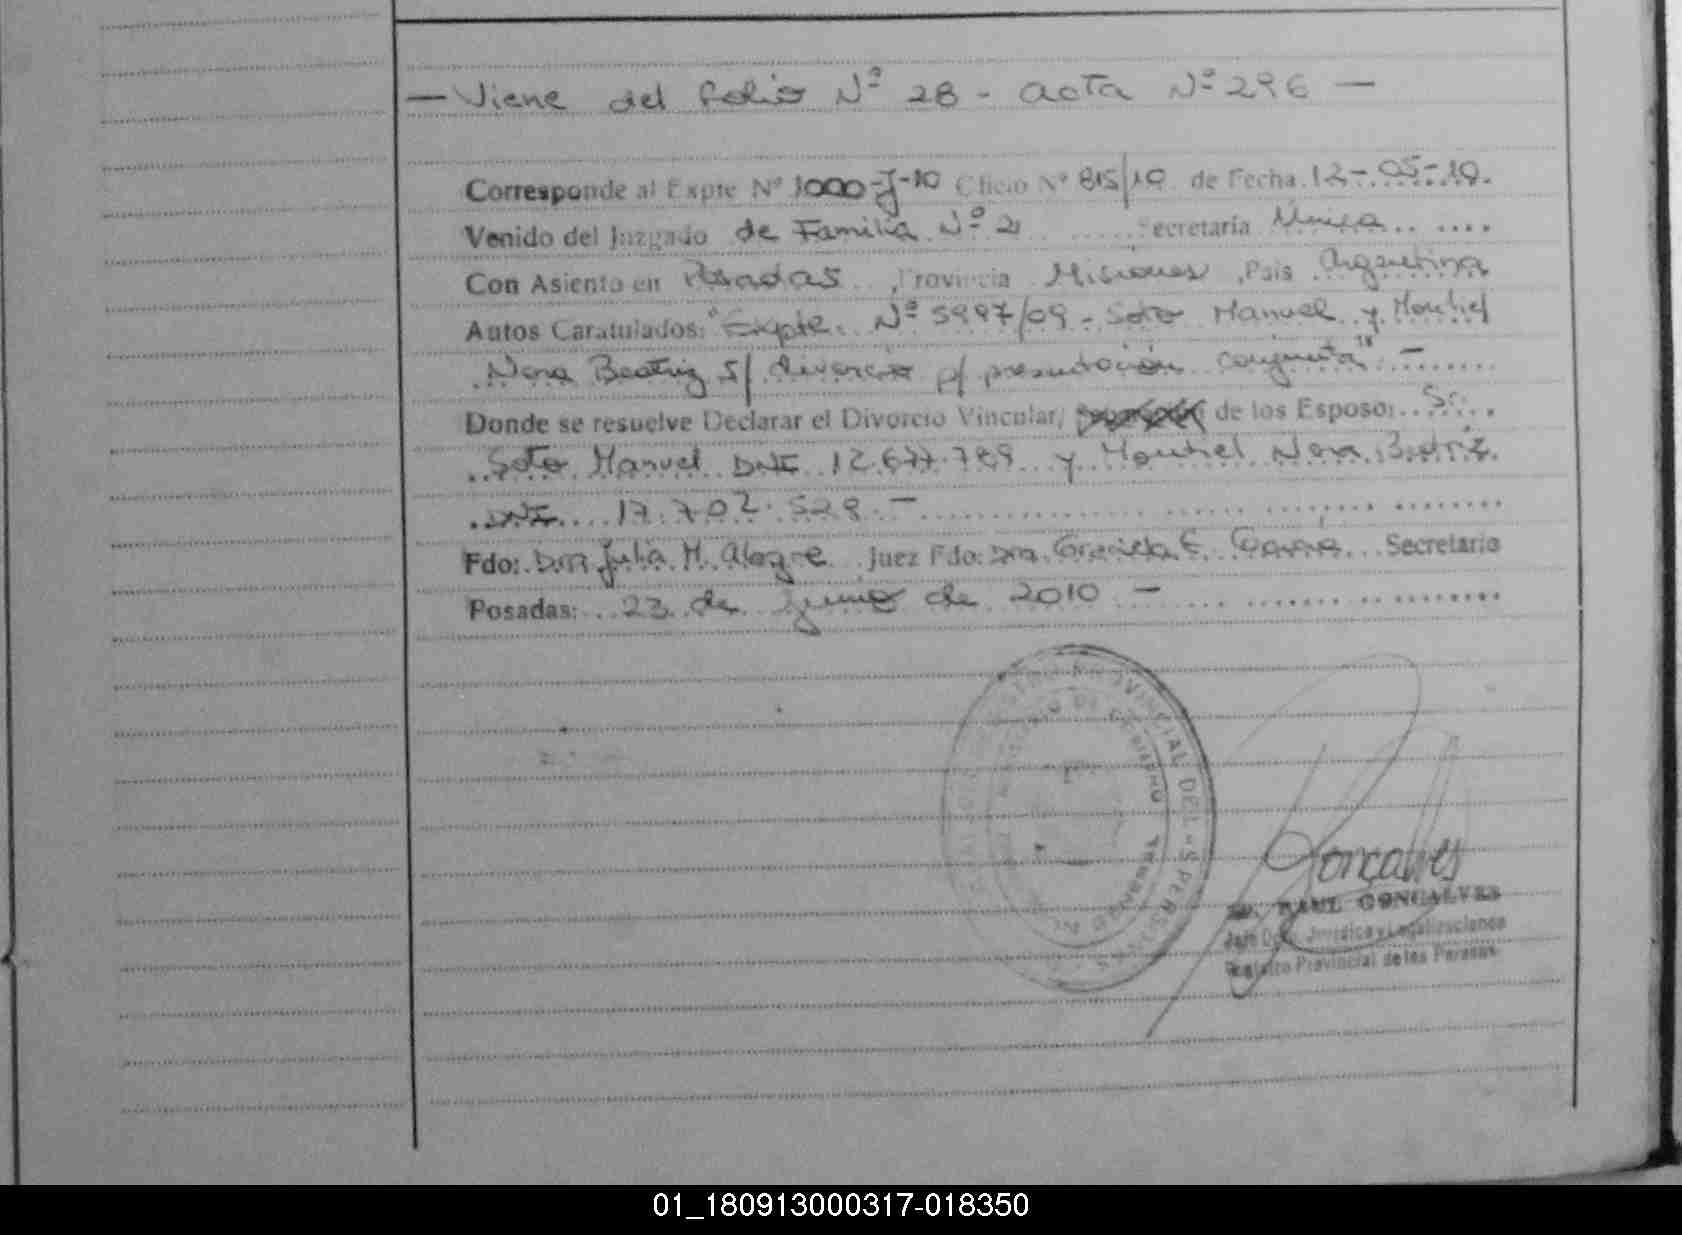 — Viene del folio Nº 28 - acta Nº 296 —
Corresponde al Expte Nº 1000-J-10 Oficio Nº 815/10 de Fecha 12-05-10.
Venido del Juzgado de Familia Nº 2 Secretaría Unica
Con Asiento en Posadas, Provincia Misiones, País Argentina
Autos Caratulados: "Expte. Nº 5997/09 - Soto Manuel y Montiel
Nora Beatriz s/ divorcio p/ presentación conjunta" -
Donde se resuelve Declarar el Divorcio Vincular, de los Esposos Sr.
Soto Manuel DNI 12.677.789 y Montiel Nora Beatriz
DNI 17.702.528 -
Fdo: Dra Julia M. Alegre Juez Fdo: Dra. Graciela E. Secretario
Posadas: 23 de Junio de 2010 -
REGISTRO PROVINCIAL DE LAS PERSONAS
MINISTERIO DE GOBIERNO
Gonçalves
RAUL GONCALVES
Jefe Dpto. Jurídico y Legalizaciones
Registro Provincial de las Personas
01_180913000317-018350